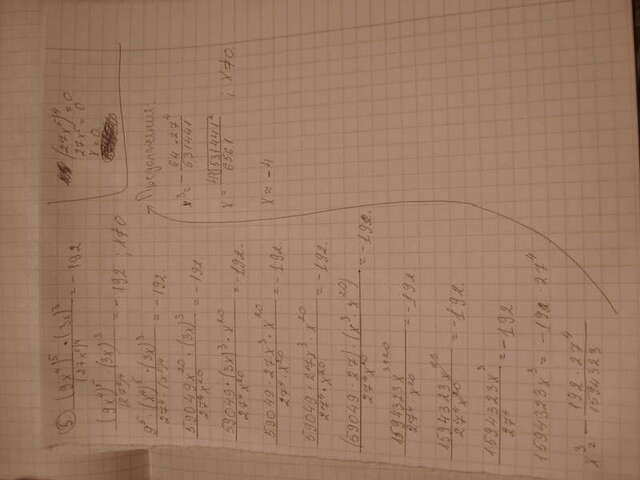 5) ((9x⁴)⁵ · (3x)³)/(27x⁵)⁴ = -192
((9x⁴)⁵ · (3x)³)/(27x⁵)⁴ = -192 ; x≠0
(9⁵ · (x⁴)⁵ · (3x)³)/(27⁴ · (x⁵)⁴) = -192
(59049x²⁰ · (3x)³)/(27⁴x²⁰) = -192
(59049 · (3x)³ · x²⁰)/(27⁴x²⁰) = -192
(59049 · 27x³ · x²⁰)/(27⁴x²⁰) = -192
(59049 · 27x³ · x²⁰)/(27⁴x²⁰) = -192
((59049 · 27)(x³ · x²⁰))/(27⁴x²⁰) = -192
(1594323x³⁺²⁰)/(27⁴x²⁰) = -192
(1594323x²³)/(27⁴x²⁰) = -192
(1594323x³)/27⁴ = -192
1594323x³ = -192 · 27⁴
x³ = -(192 · 27⁴)/1594323
(27x⁵)⁴ = 0
27x⁵ = 0
x = 0
Продолжение
x³ = -(64 · 27⁴)/531441
x = ; x≠0
x = -4